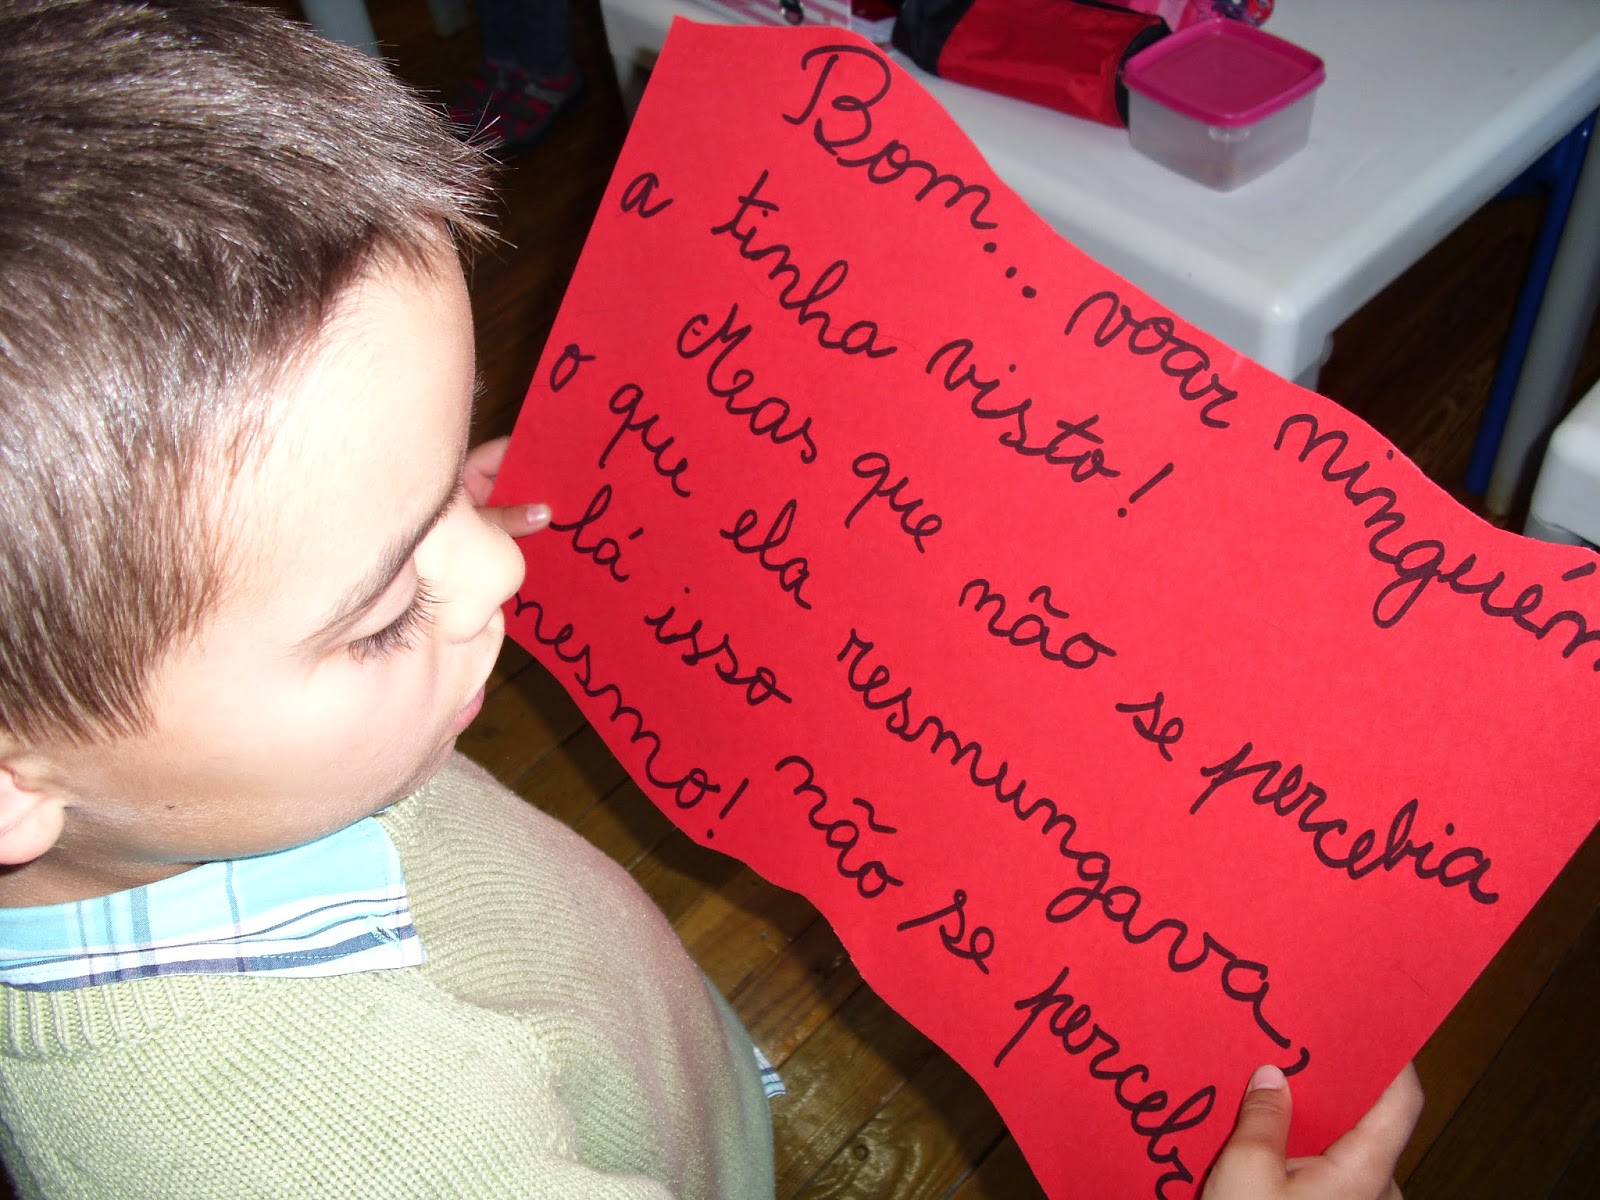 Bom... voar ninguém
a tinha visto!
Mas que não se percebia
o que ela resmungava,
lá isso não se perceb
mesmo!